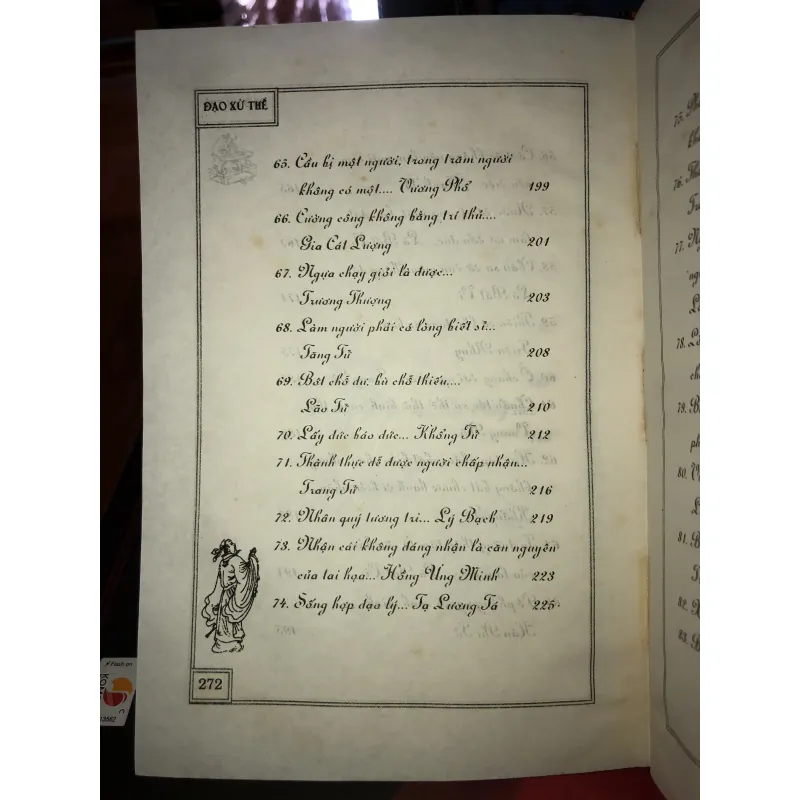 ĐẠO XỬ THẾ
65. Cầu bị một người, trong trăm người
không có một.... Vương Phổ 199
66. Cường công không bằng trí thủ....
Gia Cát Lượng 201
67. Ngựa chạy giỏi là được...
Trương Thượng 203
68. Làm người phải có lòng biết sỉ...
Tăng Tử 208
69. Bớt chỗ dư, bù chỗ thiếu....
Lão Tử 210
70. Lấy đức báo đức... Khổng Tử 212
71. Thành thực dễ được người chấp nhận...
Trang Tử 216
72. Nhân quý tương tri... Lý Bạch 219
73. Nhận cái không đáng nhận là căn nguyên
của tai họa... Hồng Ứng Minh 223
74. Sống hợp đạo lý... Tạ Lương Tá 225
272
75.
76.
77.
78.
79.
80.
81.
82.
83.